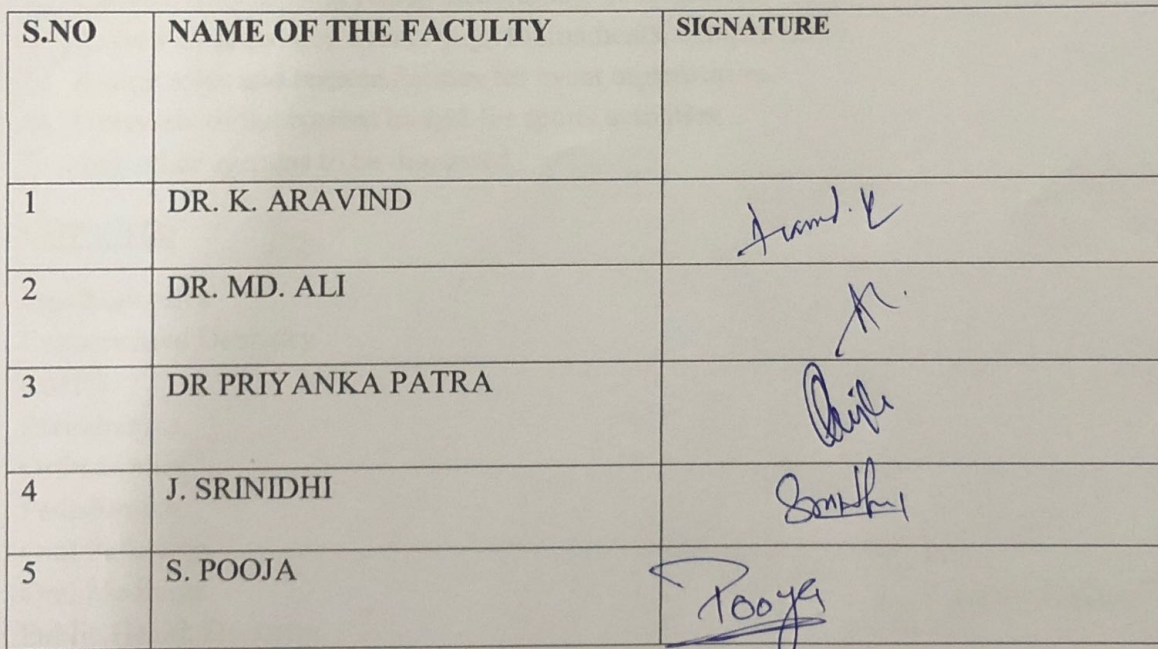 S.NO NAME OF THE FACULTY SIGNATURE
1 DR. K. ARAVIND Aravind. K
2 DR. MD. ALI
3 DR PRIYANKA PATRA
4 J. SRINIDHI
5 S. POOJA Pooja